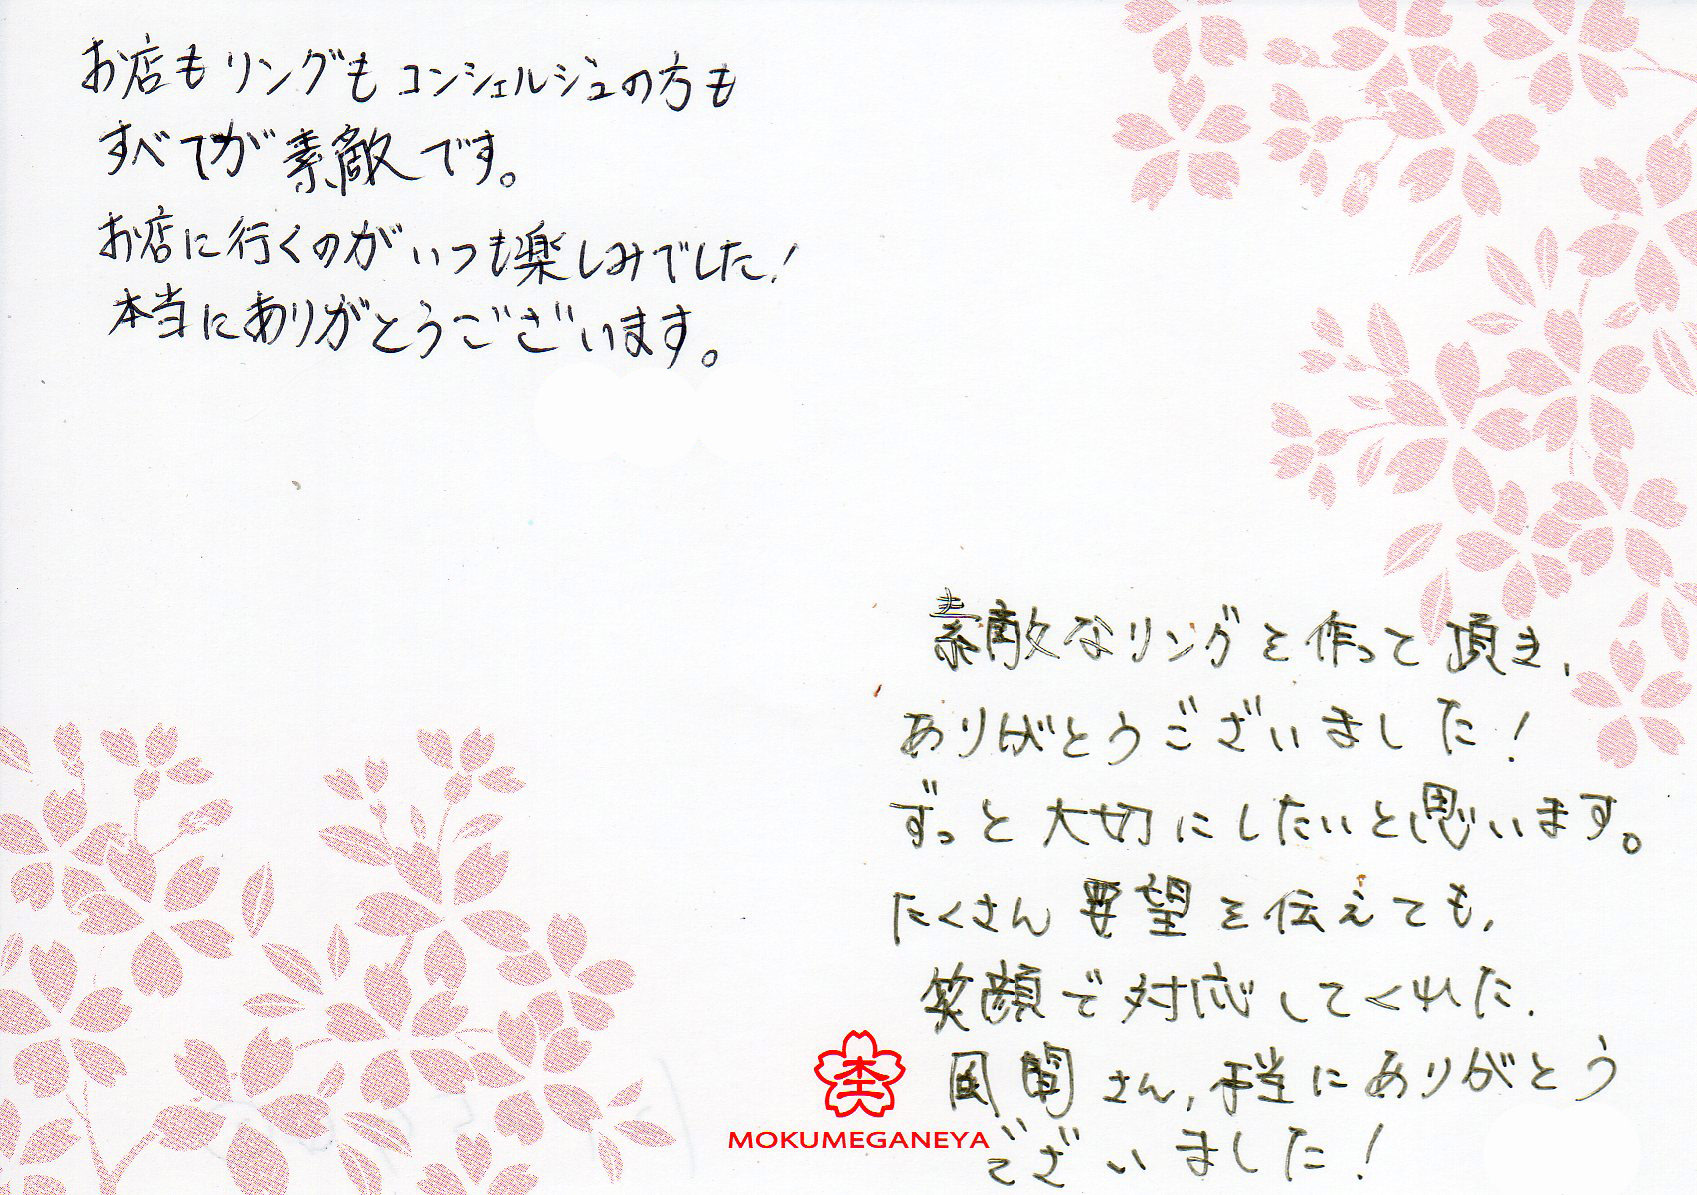 お店もリングもコンシェルジュの方も
すべてが素敵です。
お店に行くのがいつも楽しみでした!
本当にありがとうございます。
素敵なリングを作って頂き、
ありがとうございました!
ずっと大切にしたいと思います。
たくさん要望を伝えても、
笑顔で対応してくれた、
さん、本当にありがとう
ございました!
MOKUMEGANEYA